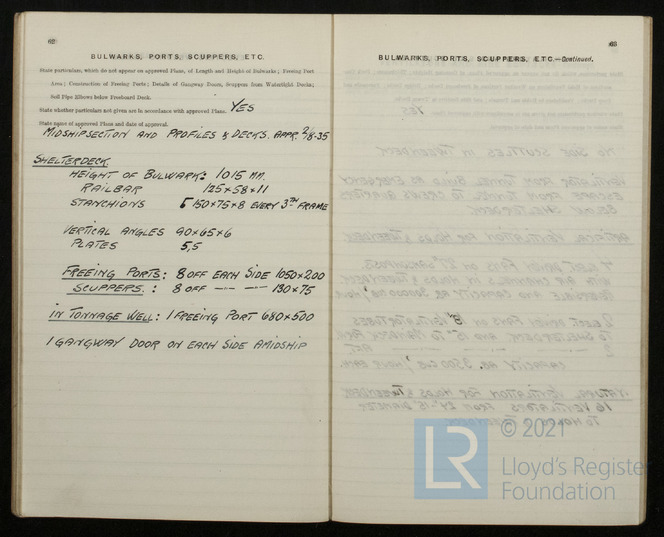 62
BULWARKS, PORTS, SCUPPERS, ETC.
State particulars, which do not appear on approved Plans, of Length and Height of Bulwarks; Freeing Port
Area; Construction of Freeing Ports; Details of Gangway Doors, Scuppers from Watertight Decks;
Soil Pipe Elbows below Freeboard Deck.
State whether particulars not given are in accordance with approved Plans. YES
State name of approved Plans and date of approval.
MIDSHIPSECTION AND PROFILES & DECKS. APPR. 2/8-35
SHELTERDECK
HEIGHT OF BULWARK: 1015 MM.
RAILBAR 125×58×11
STANCHIONS 150×75×8 EVERY 3TH FRAME
VERTICAL ANGLES 90×65×6
PLATES 5,5
FREEING PORTS: 8 OFF EACH SIDE 1050×200
SCUPPERS: 8 OFF —"— —"— 130×75
IN TONNAGE WELL: 1 FREEING PORT 680×500
1 GANGWAY DOOR ON EACH SIDE AMIDSHIP
63
BULWARKS, PORTS, SCUPPERS, ETC.—Continued.
LR
© 2021
Lloyd's Register
Foundation